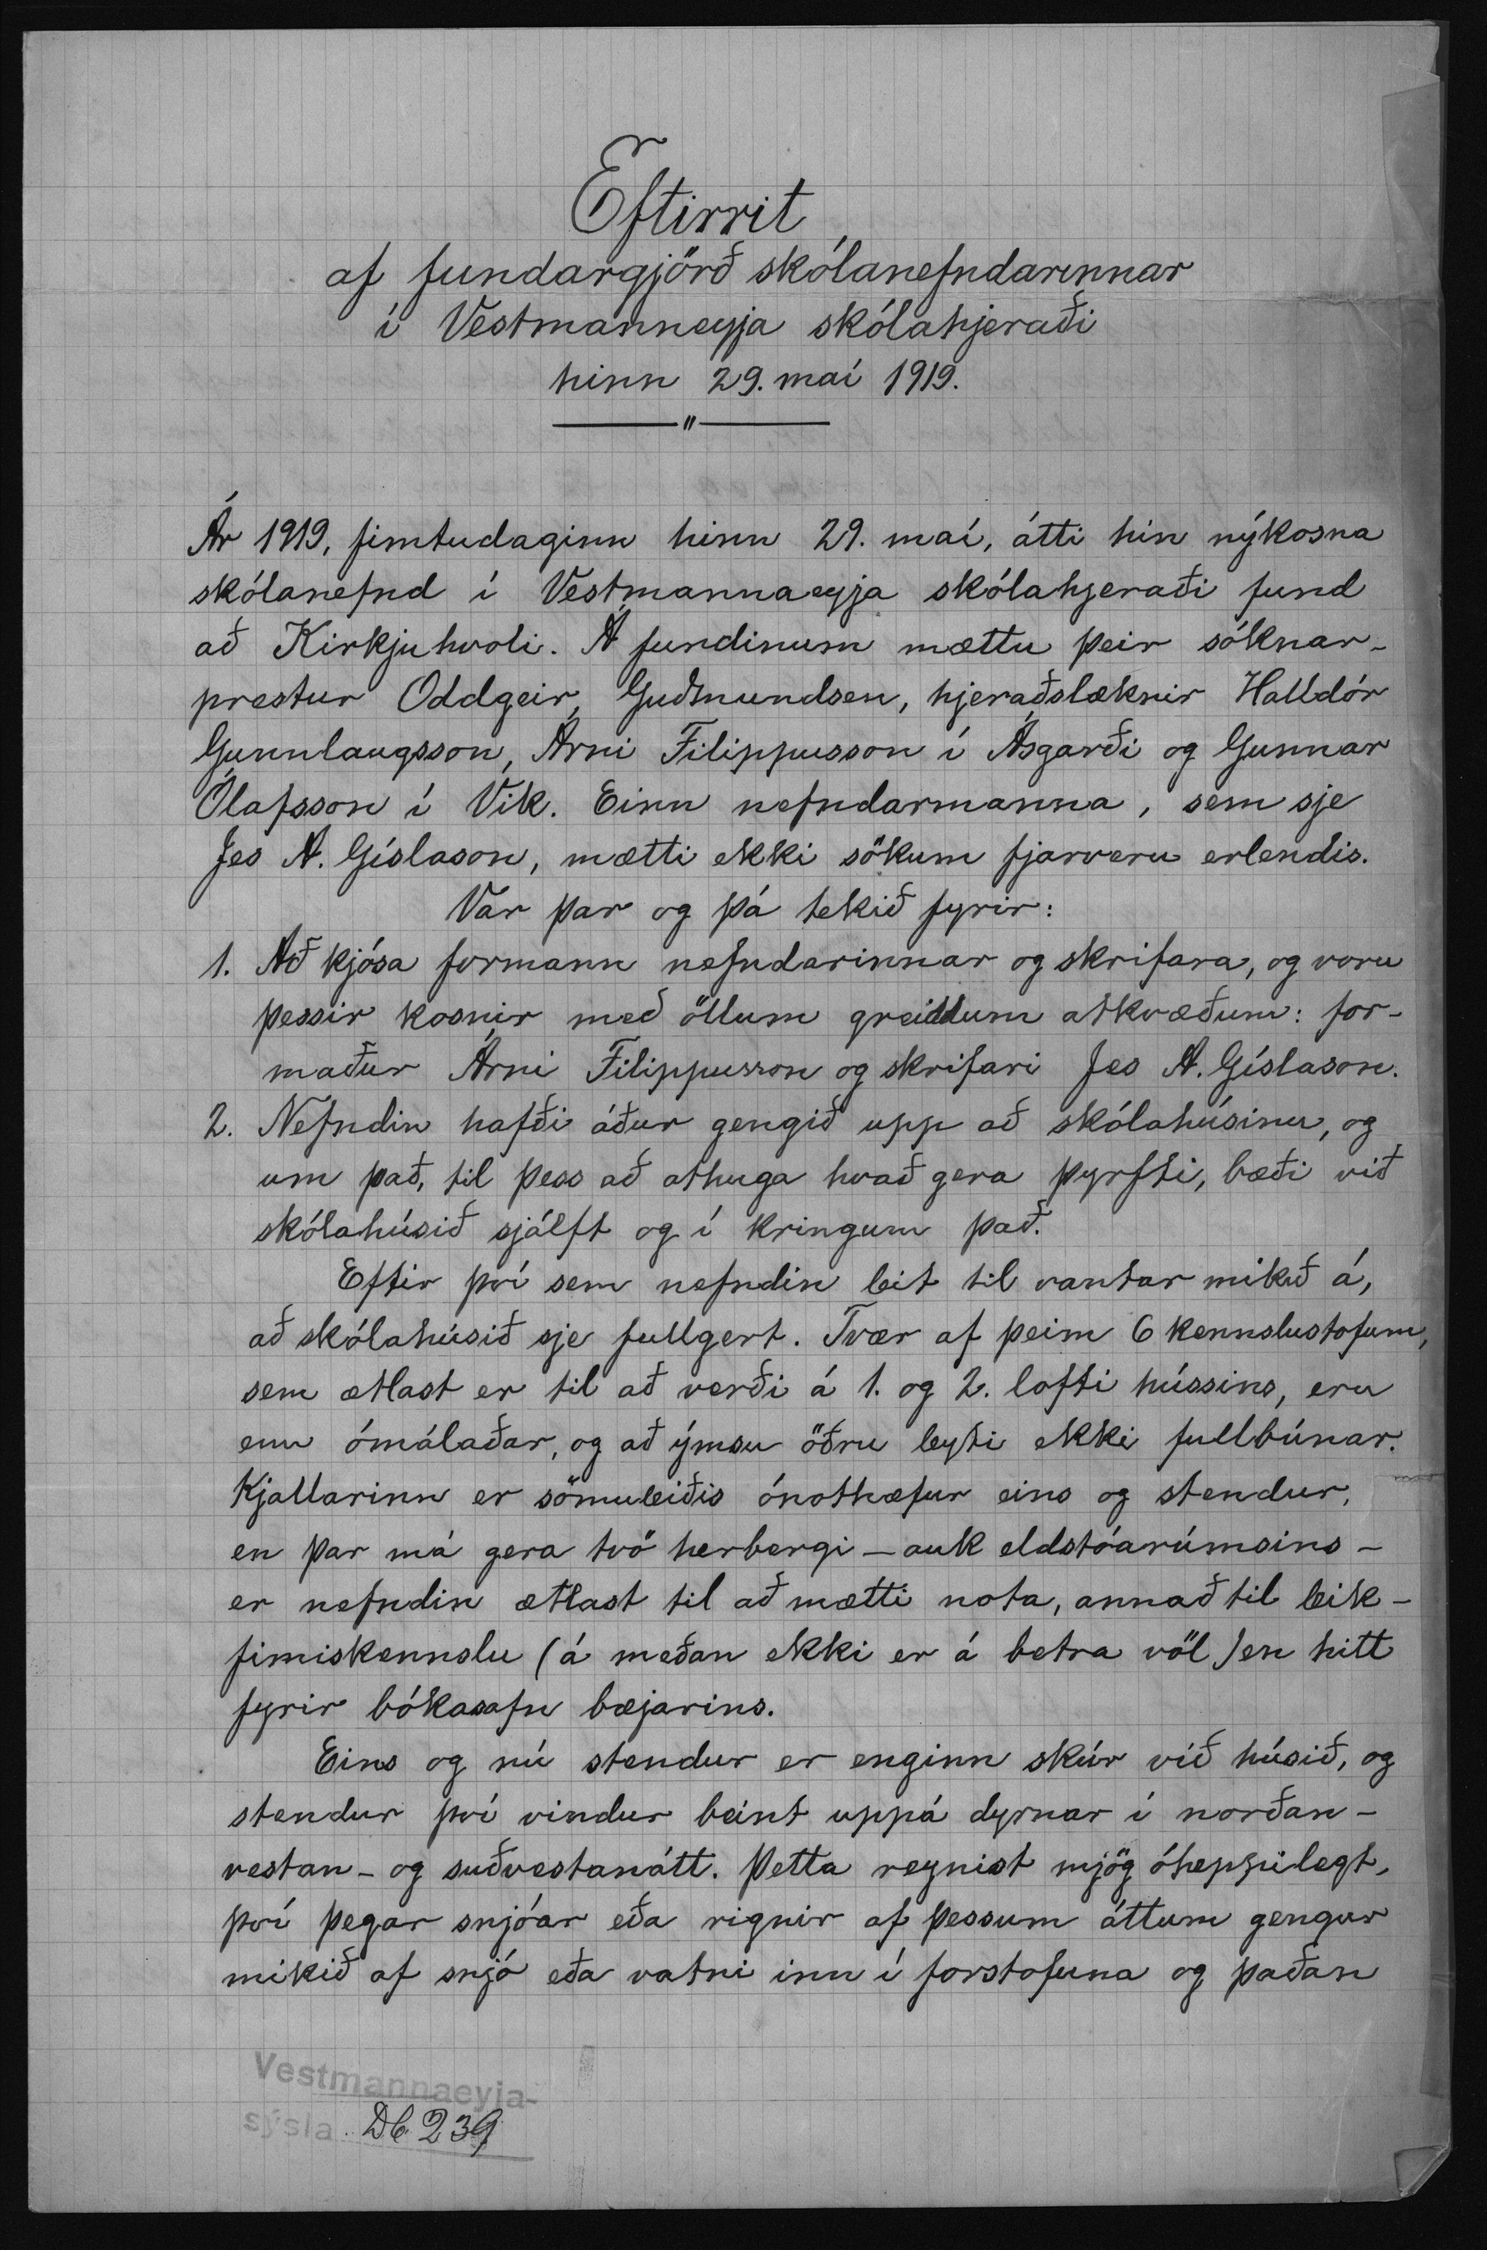 Eftirrit
af fundargjörð skólanefndarinnar
í Vestmanneyja skólahjeraði
hinn 29. maí 1919.
"
Ár 1919, fimtudaginn hinn 29. maí, átti hin nýkosna
skólanefnd í Vestmannaeyja skólahjeraði fund
að Kirkjuhvoli. Á fundinum mættu þeir sóknar-
prestur Oddgeir Guðmundsen, hjeraðslæknir Halldór
Gunnlaugsson, Árni Filippusson í Ásgarði og Gunnar
Ólafsson í Vík. Einn nefndarmanna, sem sje
Jes A. Gíslason, mætti ekki sökum fjarveru erlendis.
Var þar og þá tekið fyrir:
1. Að kjósa formann nefndarinnar og skrifara, og voru
þessir kosnir með öllum greiddum atkvæðum: for-
maður Árni Filippusson og skrifari Jes A. Gíslason.
2. Nefndin hafði áður gengið upp að skólahúsinu, og
um það, til þess að athuga hvað gera þyrfti, bæði við
skólahúsið sjálft og í kringum það.
Eftir því sem nefndin leit til vantar mikið á,
að skólahúsið sje fullgert. Tvær af þeim 6 kennslustofum,
sem ætlast er til að verði á 1. og 2. lofti hússins, eru
enn ómálaðar, og að ýmsu öðru leyti ekki fullbúnar.
Kjallarinn er sömuleiðis ónothæfur eins og stendur,
en þar má gera tvö herbergi – auk eldstóarúmsins –
er nefndin ætlast til að mætti nota, annað til leik-
fimiskennslu (á meðan ekki er á betra völ) en hitt
fyrir bókasafn bæjarins.
Eins og nú stendur er enginn skúr við húsið, og
stendur því vindur beint uppá dyrnar í norðan-
vestan- og suðvestanátt. Þetta reynist mjög óheppilegt,
því þegar snjóar eða rignir af þessum áttum gengur
mikið af snjó eða vatni inn í forstofuna og þaðan
Vestmannaeyja-
sýsla. Db 239